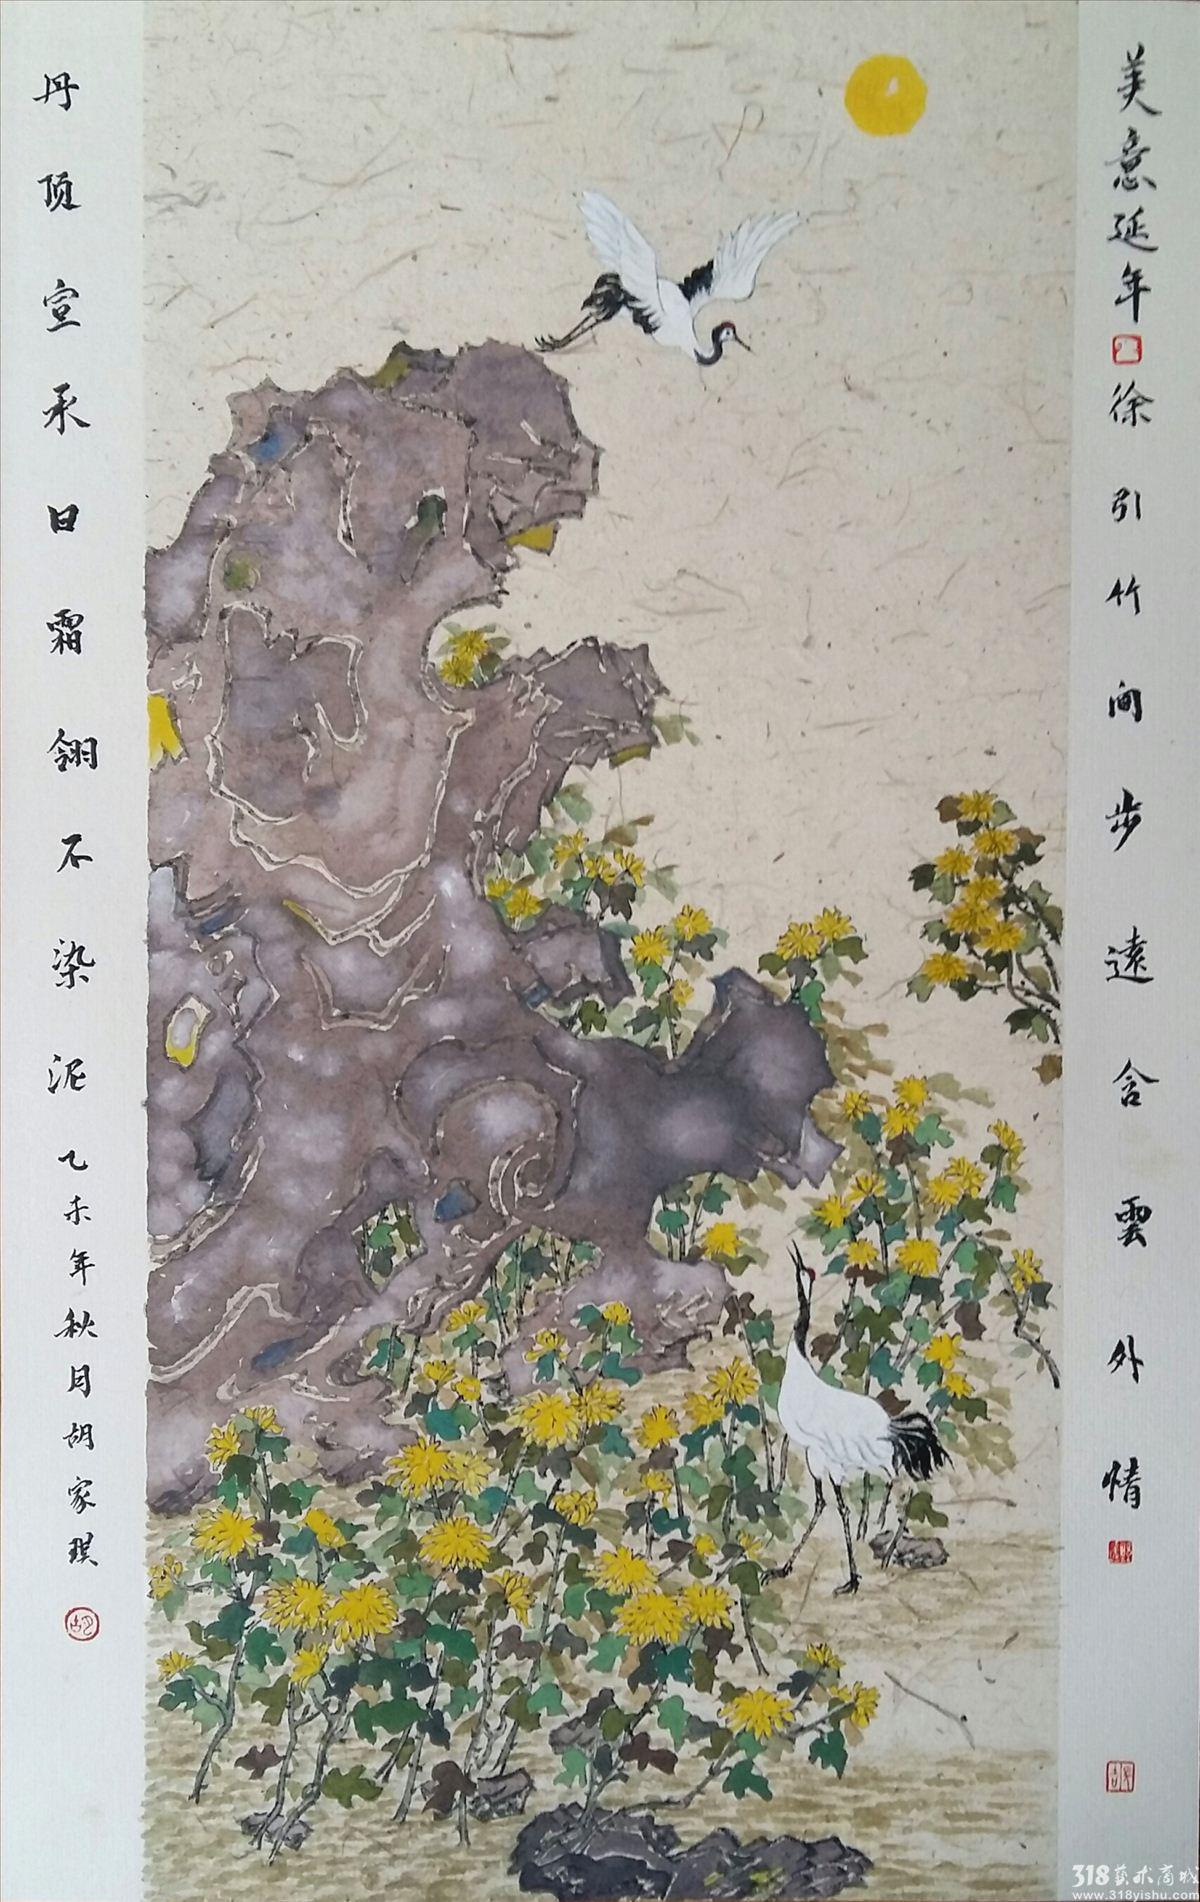 美意延年
徐引竹间步遠含雲外情
丹顶宣承日霜翎不染泥
乙未年秋月胡家琪
318藝术商城
www.318yishu.com